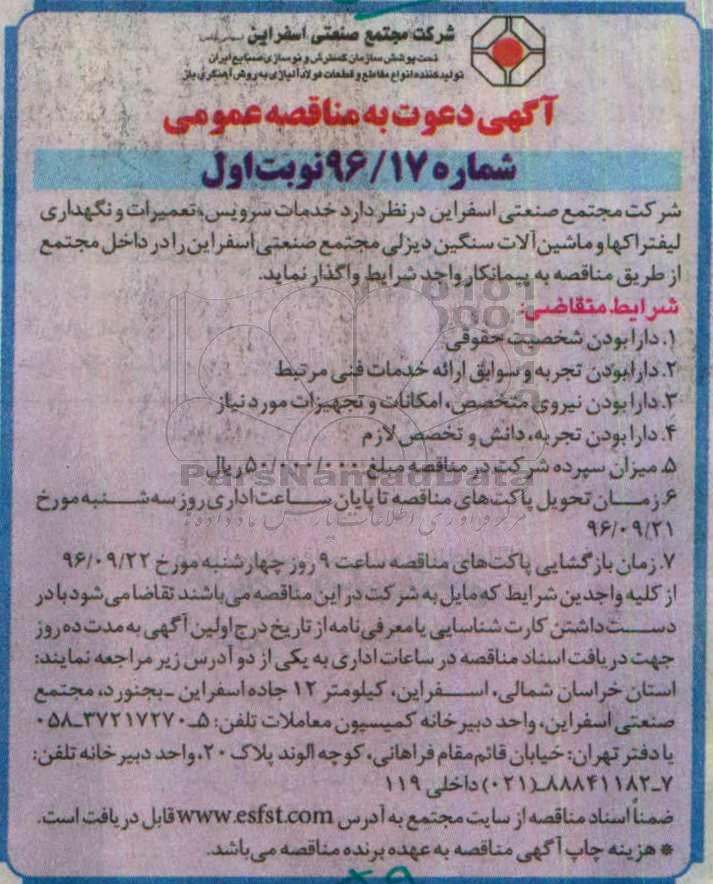 شرکت مجتمع صنعتی اسفراین (سهامی خاص)
تحت پوشش سازمان گسترش و نوسازی صنایع ایران
تولیدکننده انواع مقاطع و قطعات فولاد آلیاژی به روش آهنگری باز
آگهی دعوت به مناقصه عمومی
شماره ۹۶/۱۷ نوبت اول
شرکت مجتمع صنعتی اسفراین در نظر دارد خدمات سرویس، تعمیرات و نگهداری
لیفتراکها و ماشین آلات سنگین دیزلی مجتمع صنعتی اسفراین را در داخل مجتمع
از طریق مناقصه به پیمانکار واجد شرایط واگذار نماید.
شرایط متقاضی:
۱. دارا بودن شخصیت حقوقی
۲. دارا بودن تجربه و سوابق ارائه خدمات فنی مرتبط
۳. دارا بودن نیروی متخصص، امکانات و تجهیزات مورد نیاز
۴. دارا بودن تجربه، دانش و تخصص لازم
۵. میزان سپرده شرکت در مناقصه مبلغ ۵۰/۰۰۰/۰۰۰ ریال
ParsNamadData
۶. زمان تحویل پاکت‌های مناقصه تا پایان ساعت اداری روز سه شنبه مورخ
۹۶/۰۹/۲۱
۷. زمان بازگشایی پاکت‌های مناقصه ساعت ۹ روز چهارشنبه مورخ ۹۶/۰۹/۲۲
از کلیه واجدین شرایط که مایل به شرکت در این مناقصه می‌باشند تقاضا می‌شود با در
دست داشتن کارت شناسایی یا معرفی نامه از تاریخ درج اولین آگهی به مدت ده روز
جهت دریافت اسناد مناقصه در ساعات اداری به یکی از دو آدرس زیر مراجعه نمایند:
استان خراسان شمالی، اسفراین، کیلومتر ۱۲ جاده اسفراین ـ بجنورد، مجتمع
صنعتی اسفراین، واحد دبیرخانه کمیسیون معاملات تلفن: ۵ـ۳۷۲۱۷۲۷۰ـ۰۵۸
یا دفتر تهران: خیابان قائم مقام فراهانی، کوچه الوند پلاک ۲۰، واحد دبیرخانه تلفن:
۷ـ۸۸۸۴۱۱۸۲ـ(۰۲۱) داخلی ۱۱۹
ضمناً اسناد مناقصه از سایت مجتمع به آدرس www.esfst.com قابل دریافت است.
* هزینه چاپ آگهی مناقصه به عهده برنده مناقصه می‌باشد.